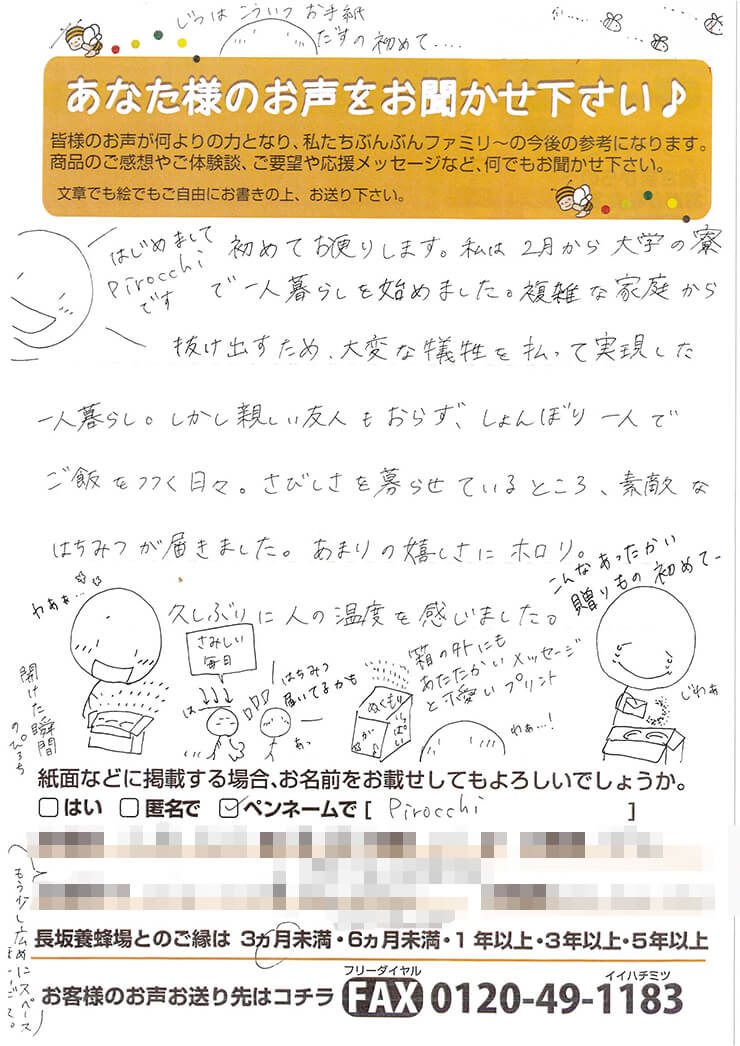 じつは こういう お手紙
だすの初めて....
あなた様のお声をお聞かせ下さい♪
皆様のお声が何よりの力となり、私たちぶんぶんファミリ〜の今後の参考になります。
商品のご感想やご体験談、ご要望や応援メッセージなど、何でもお聞かせ下さい。
文章でも絵でもご自由にお書きの上、お送り下さい。
はじめまして
Pirocchi
です
初めてお便りします。私は2月から大学の寮
で一人暮らしを始めました。複雑な家庭から
抜け出すため、大変な犠牲を払って実現した
一人暮らし。しかし親しい友人もおらず、しょんぼり一人で
ご飯をつつく日々。さびしさを募らせているところ、素敵な
はちみつが届きました。あまりの嬉しさにホロリ。
久しぶりに人の温度を感じました。
こんなあったかい
贈りもの初めてー
わぁぁ…
開けた瞬間
のぴろち
さみしい
毎日
は
はちみつ
届いてるかも
あ、
箱の外にも
あたたかいメッセージ
と可愛いプリント
ぬくもり
いっぱい
か
わぁ…!
じわぁ
紙面などに掲載する場合、お名前をお載せしてもよろしいでしょうか。
□はい □匿名で ☑ペンネームで [ Pirocchi ]
もう少し広めにスペース
長坂養蜂場とのご縁は 3ヵ月未満・6ヵ月未満・1年以上・3年以上・5年以上
フリーダイヤル
イイハチミツ
お客様のお声お送り先はコチラ FAX 0120-49-1183